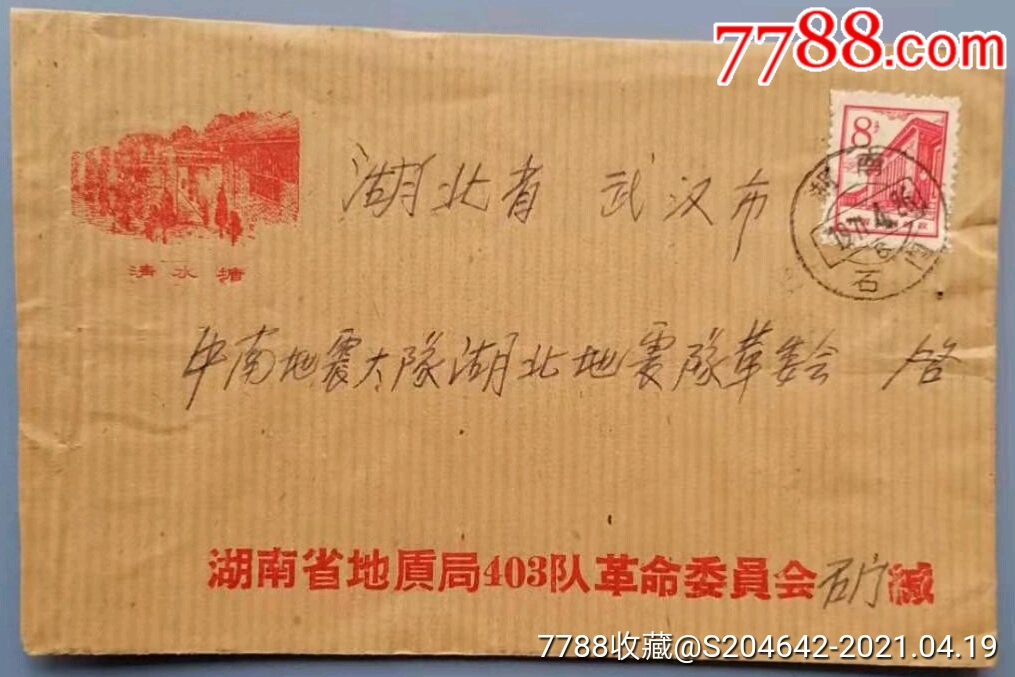 7788.com
8分
湖南
1971.4.26
石门
清水塘
湖北省 武汉市
中南地震大隊湖北地震隊革委会 啓
湖南省地質局403队革命委員会石门緘
7788收藏@S204642-2021.04.19